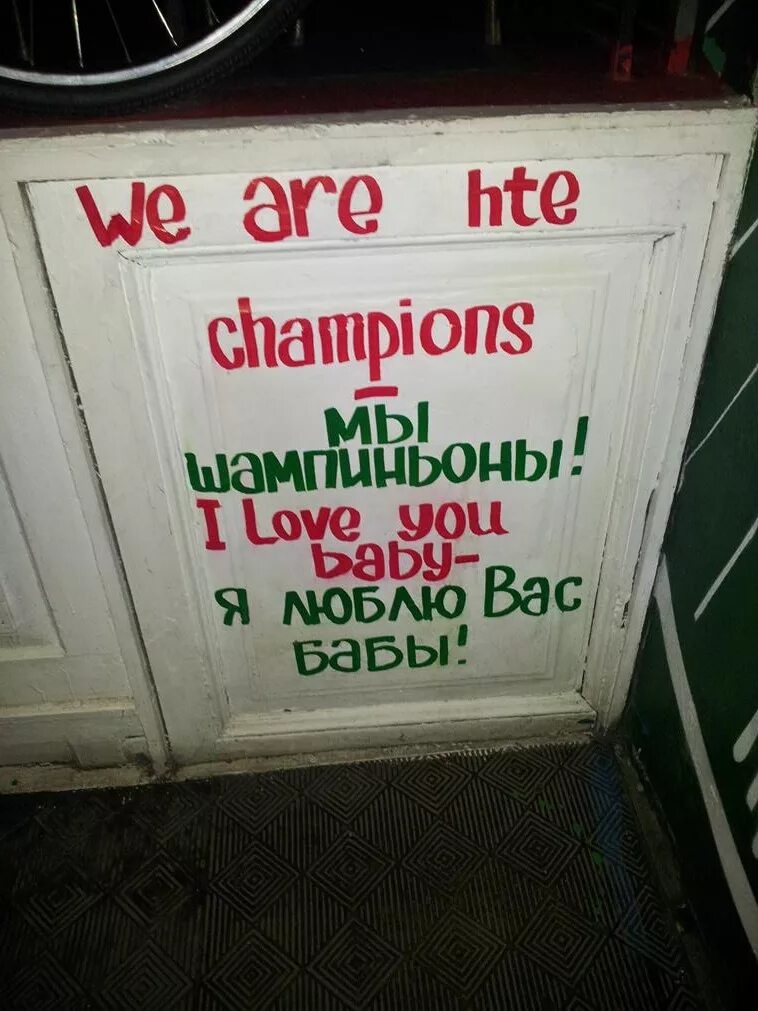 We are hte
champions
-
мы
шампиньоны!
I Love you
baby-
Я люблю Вас
бабы!